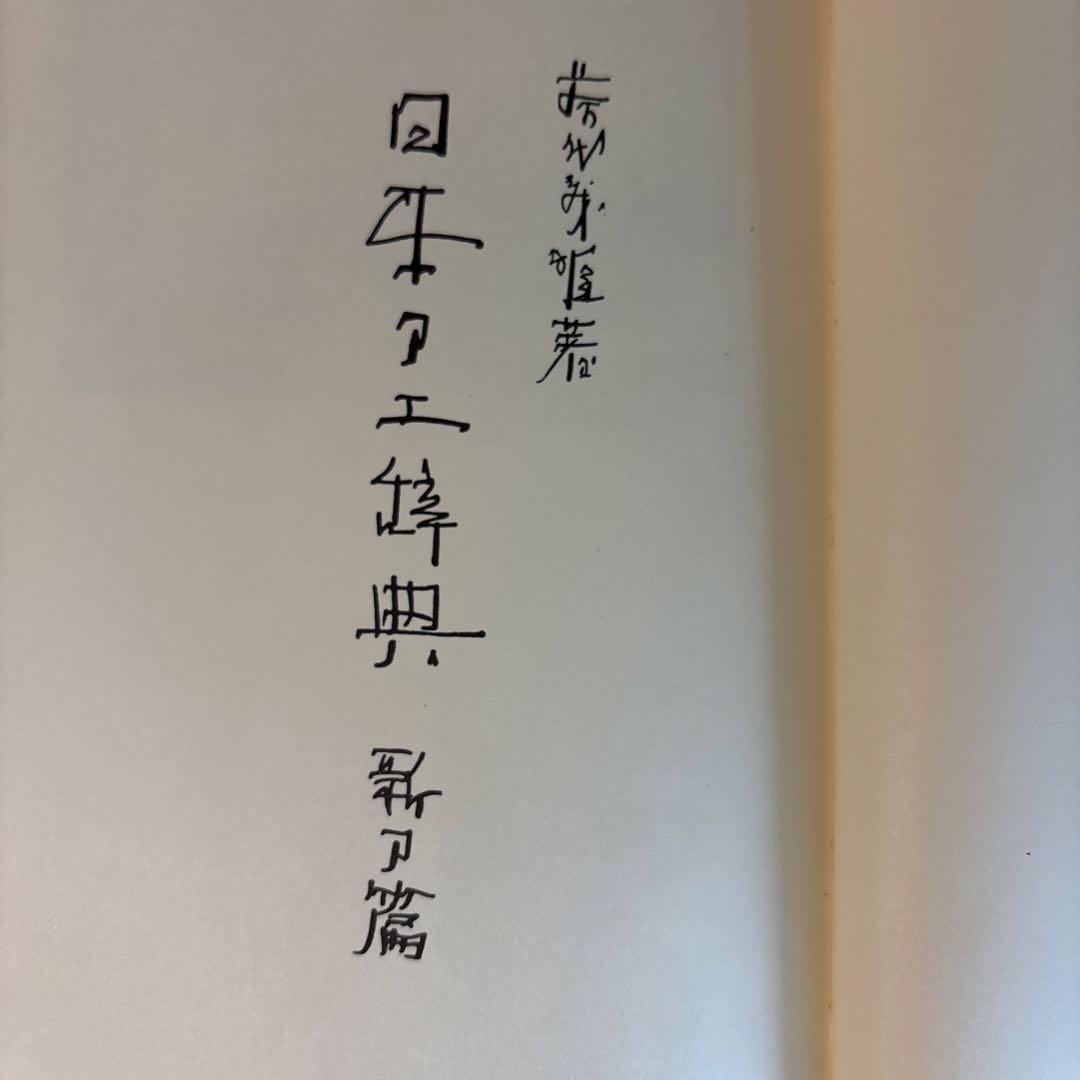 藤代義雄著
日本刀工辞典 新刀篇